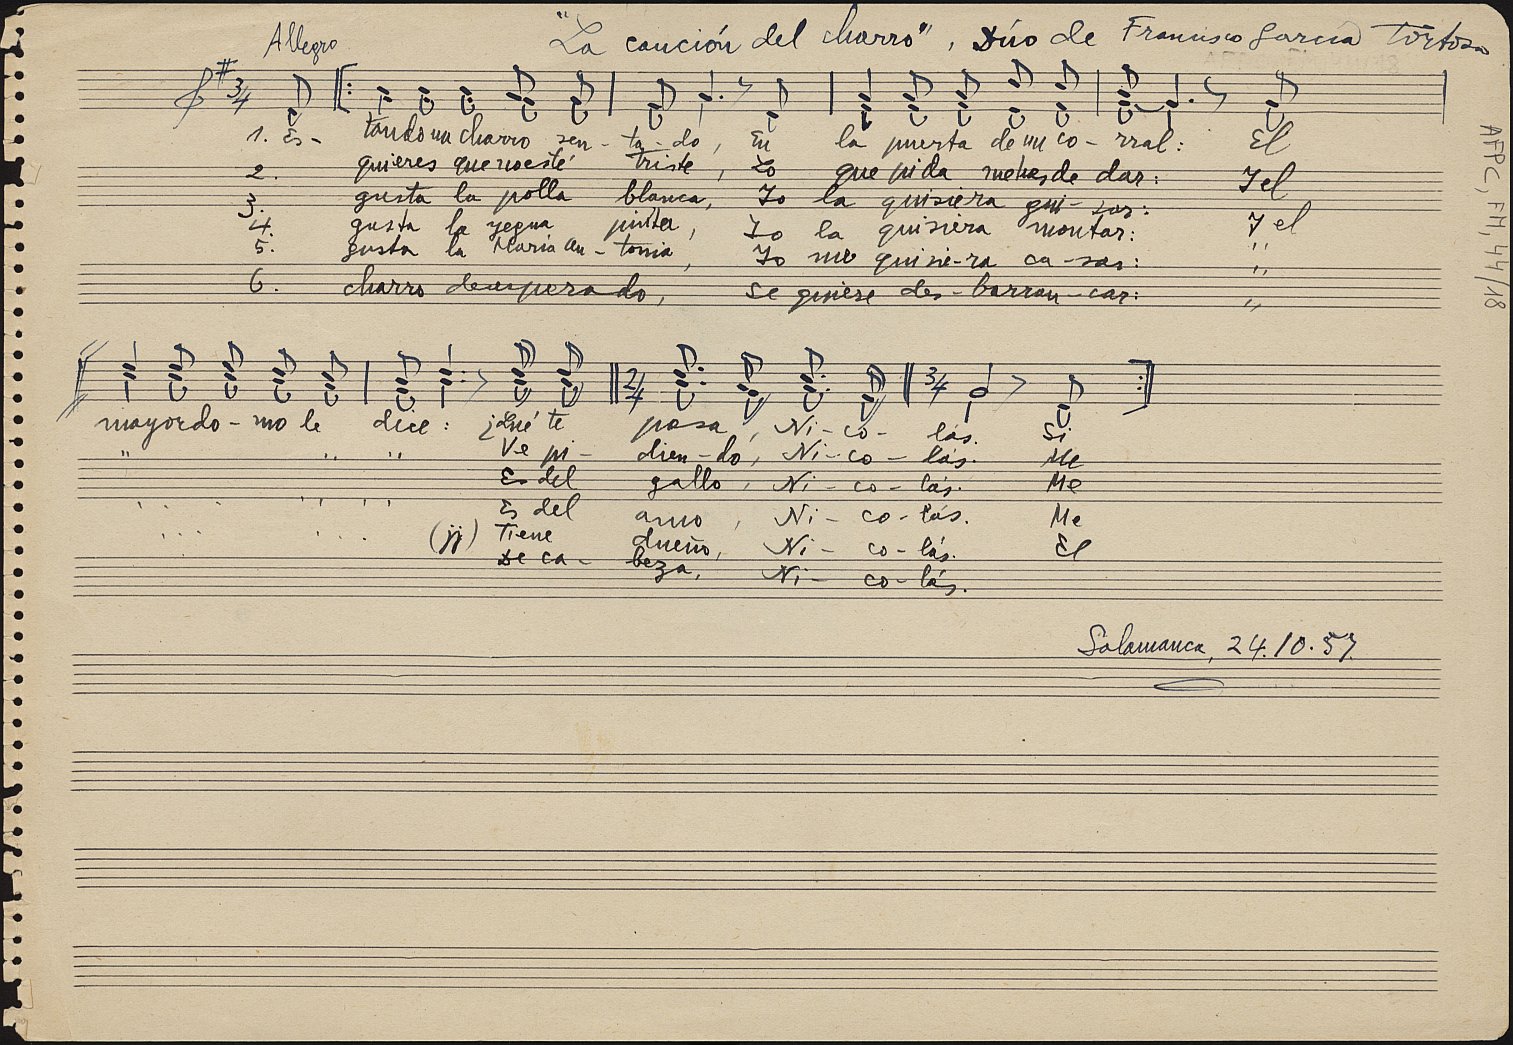 Allegro "La canción del charro", Dúo de Francisco García Tortosa
3/4
1. Es- tando un charro sen- ta- do, En la puerta de un co- rral: El
2. quieres que no esté triste, Lo que pida me has de dar: Y el
3. gusta la polla blanca, Yo la quisiera gui- sar:
4. gusta la yegua pinta, Yo la quisiera montar: Y el
5. gusta la María An- tonia, Yo me quisie-ra ca-sar: "
6. charro desesperado, Se quiere des-barran-car: "
2/4 3/4
mayordo-mo le dice: ¿Qué te pasa, Ni-co- lás. Si
" " " Ve pi- dien-do, Ni-co- lás. Me
Es del gallo, Ni- co- lás. Me
" " " Es del amo, Ni- co-lás. Me
(jj) Tiene dueño, Ni- co-lás. El
De ca- beza, Ni- co-lás.
Salamanca, 24.10.57.
AFPC, FM, 44/18